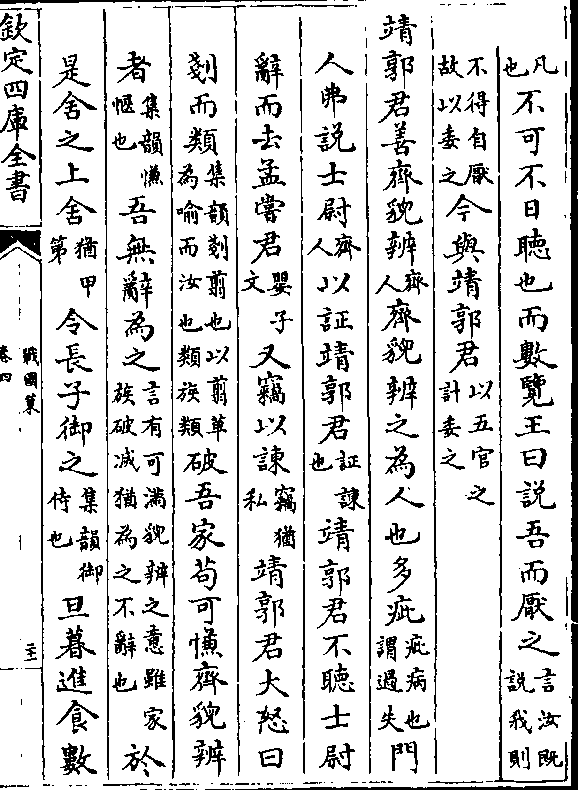 凡也不可不日聽也而數覽王曰說吾而厭之言汝既說我則
不得自厭故以委之今與靖郭君以五官之計委之
靖郭君善齊貌辨齊人齊貌辨之為人也多疵疵病也謂過失門
人弗說士尉齊人以証靖郭君証諫也靖郭君不聽士尉
辭而去孟嘗君嬰子文又竊以諫竊猶私靖郭君大怒曰
剗而類集韻剗翦也以翦草為喻而汝也類族類破吾家苟可慊齊貌辨
者集韻慊愜也吾無辭為之言有可滿貌辨之意雖家族破滅猶為之不辭也於
是舍之上舍猶甲第令長子御之集韻御侍也旦暮進食數
欽定四庫全書
戰國策
卷四